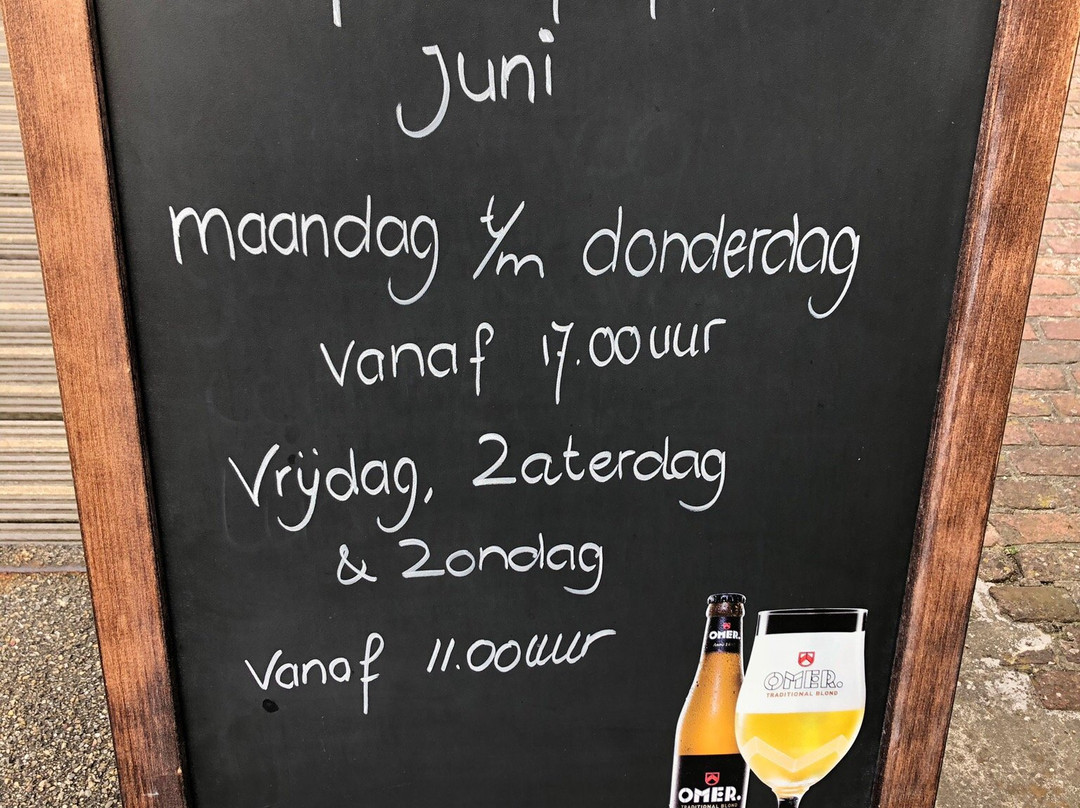 Juni
maandag t/m donderdag
vanaf 17.00uur
Vrijdag, Zaterdag
& Zondag
vanaf 11.00uur
OMER.
OMER.
TRADITIONAL BLOND
OMER.
TRADITIONAL BLOND